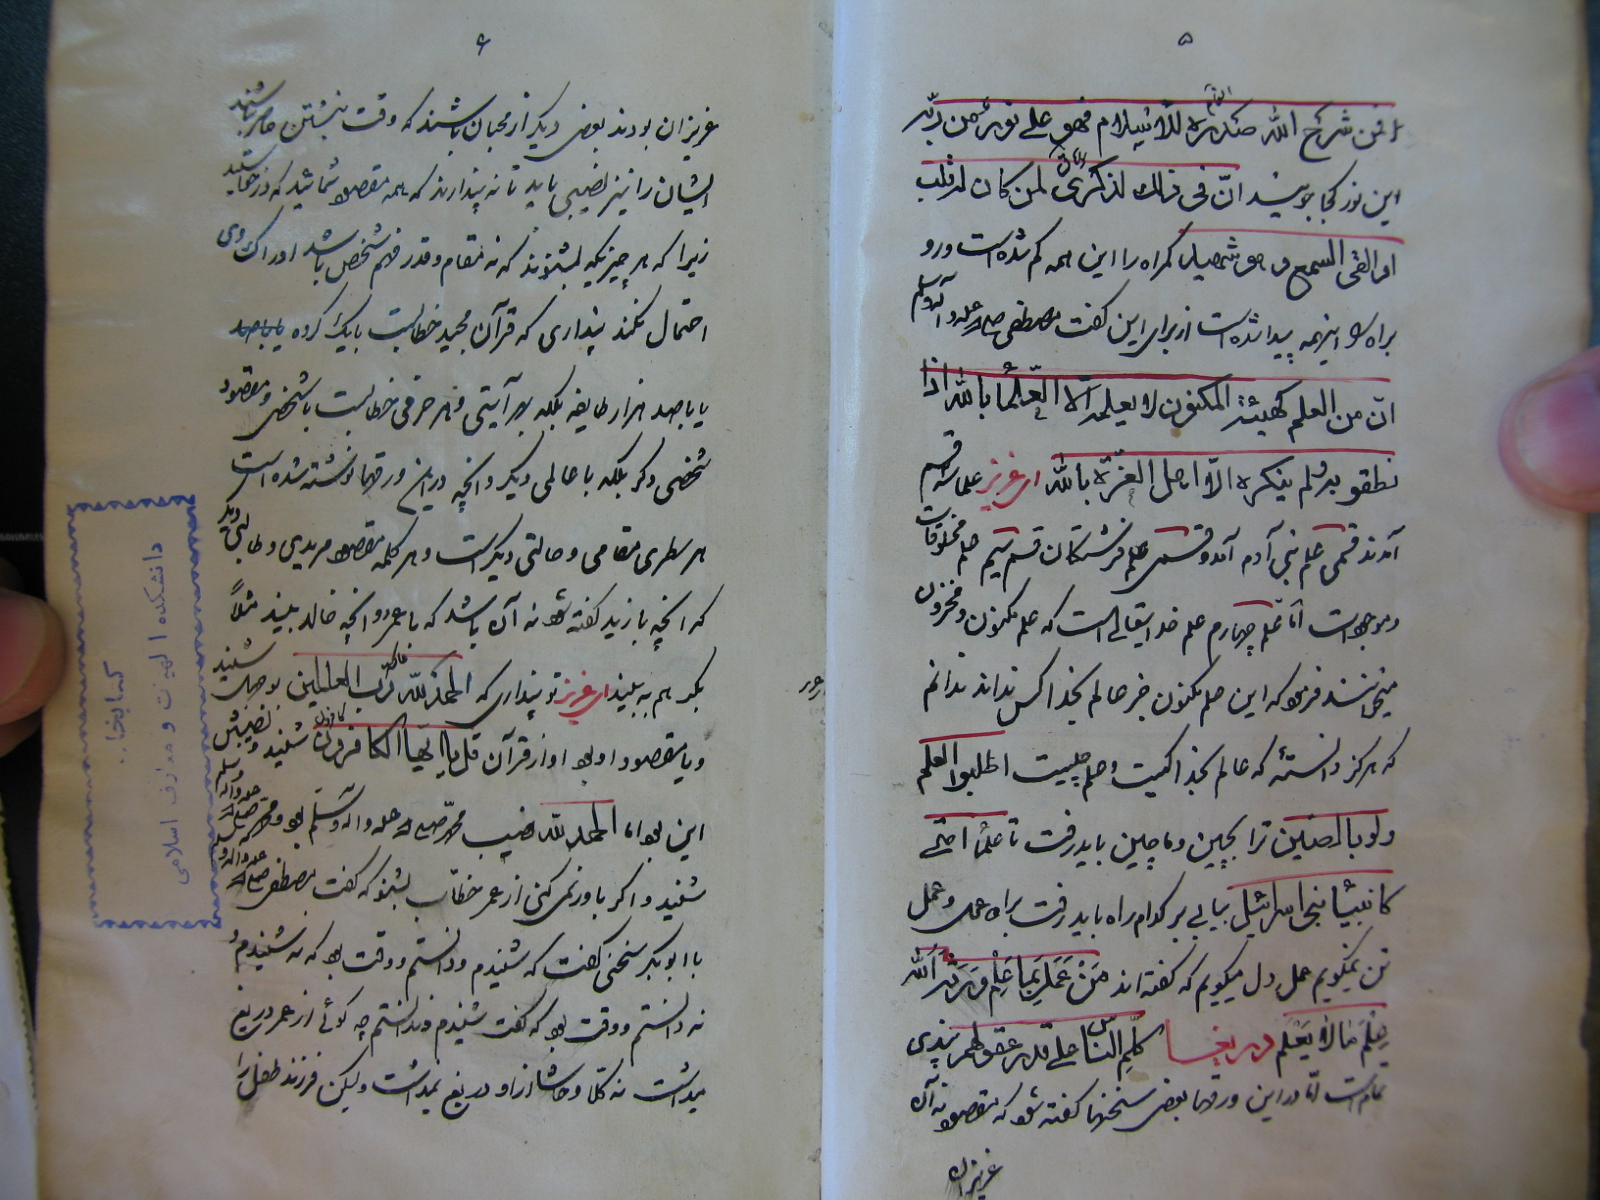 ۵
افمن شرح الله صدره للاسلام فهو علی نور من ربه
این نور کجا جویند ان فی ذلک لذکری لمن کان له قلب
او القی السمع و هو شهید گمراه را این همه گم شده است و رو
براه را اینهمه پیدا شده است از برای این گفت مصطفی صلی الله علیه و آله وسلم
ان من العلم کهیئة المکنون لا یعلمه الا العلماء بالله اذا
نطقو به لم ینکره الا اهل العزة بالله ای عزیز علما سه قسم
آمدند قسمی علم بنی آدم آمد و قسمی علم فرشتگان قسم سیم علم مخلوقات
و موجودات اما علم چهارم علم خدایتعالی است که علم مکنون و مخزون
میخوانند فرمود که این علم مکنون جز عالم بخدا کس نداند ندانم
که هرگز دانستهٔ که عالم بخدا کیست و علم چیست اطلبوا العلم
ولو بالصین ترا بچین و ماچین باید رفت تا علماء امتی
کانبیاء بنی اسرائیل بیابی بر کدام راه باید رفت براه عمل و عمل
تن نمیگویم عمل دل میگویم که گفته اند من عمل بما علم ورثه الله
علم ما لا یعلم دریغا کلم الناس علی قدر عقولهم پندی
تمام است اما در این ورقها بعضی سخنها گفته شود که مقصود نه آن
عزیزان
۶
عزیزان بودند بعضی دیگر از محبان باشند که وقت نبشتن حاضر نباشند
ایشان را نیز نصیبی باید تا نه پندارند که همه مقصود شمائید که
زیرا که هر چیزیکه بشنوند که نه مقام و قدر فهم شخص باشد ادراک وی
احتمال نکند پنداری که قرآن مجید خطابست با یک کرده یا باصد
یا باصد هزار طایفه بلکه هر آیتی و هر حرفی خطابست با شخصی و مقصود
شخصی دگر بلکه با عالمی دیگر و آنچه در این ورقها نوشته شده است
هر سطری مقامی و حالتی دیگر است و هر کلمه مقصود مریدی و طالبی دیگر
که آنچه با زید گفته شود نه آن باشد که با عمرو و آنچه خالد بیند مثلاً
بکر هم به بیند ای عزیز تو پنداری که الحمد لله رب العالمین بوجهل شنید
و یا مقصود او بود او از قرآن قل یا ایها الکافرون شنید و نصیبش
این بود اما الحمد لله نصیب محمد صلی الله علیه و اله وسلم بود و محمد صلی الله علیه و اله وسلم
شنید و اگر باور نمی کنی از عمر خطاب بشنو که گفت مصطفی صلی الله علیه و اله
با ابوبکر سخنی گفت که شنیدم و دانستم و وقت بود که نه شنیدم و
نه دانستم و وقت بود که گفت شنیدم و ندانستم چه گوئی از عمر دریغ
میداشت نه کلا و حاشا از او دریغ نمیداشت ولیکن فرزند طفل را
دانشکده الهیات و معارف اسلامی
کتابخانه